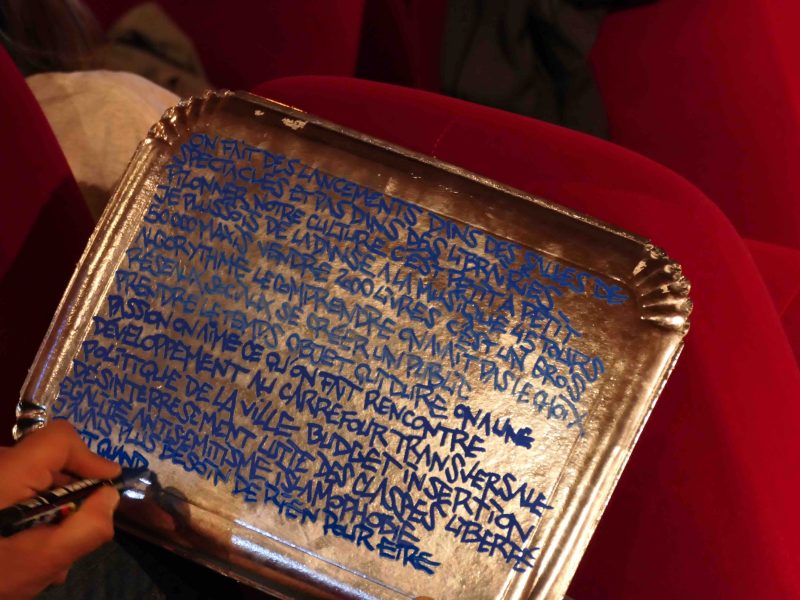 ON FAIT DES LANCEMENTS DANS DES SALLES DE
SPECTACLES ET PAS DANS DES LIBRAIRIES
PILONNER NOTRE CULTURE C'EST PETIT A PETIT
JE PLUSSOIS DE LA DANSE A LA MUSIQUE 45 TOURS
50000 MAXIS VENDRE 2000 LIVRES C'EST UN GROS
ALGORYTHME LE COMPRENDRE ON AVAIT PAS LE CHOIX
RESEAUX SE CREER UN PUBLIC
PRENDRE LE TEMPS OBJET CULTURE ON A UNE
PASSION ON AIME CE QU'ON FAIT RENCONTRE
DEVELOPPEMENT AU CARREFOUR TRANSVERSALE
POLITIQUE DE LA VILLE BUDGET INSERTION
DESINTERRESEMENT LUTTE DES CLASSES LIBERTE
EGALITE ANTISEMITISME ISLAMOPHOBIE
J'AVAIS PLUS BESOIN DE RIEN POUR ETRE
ET QUAND